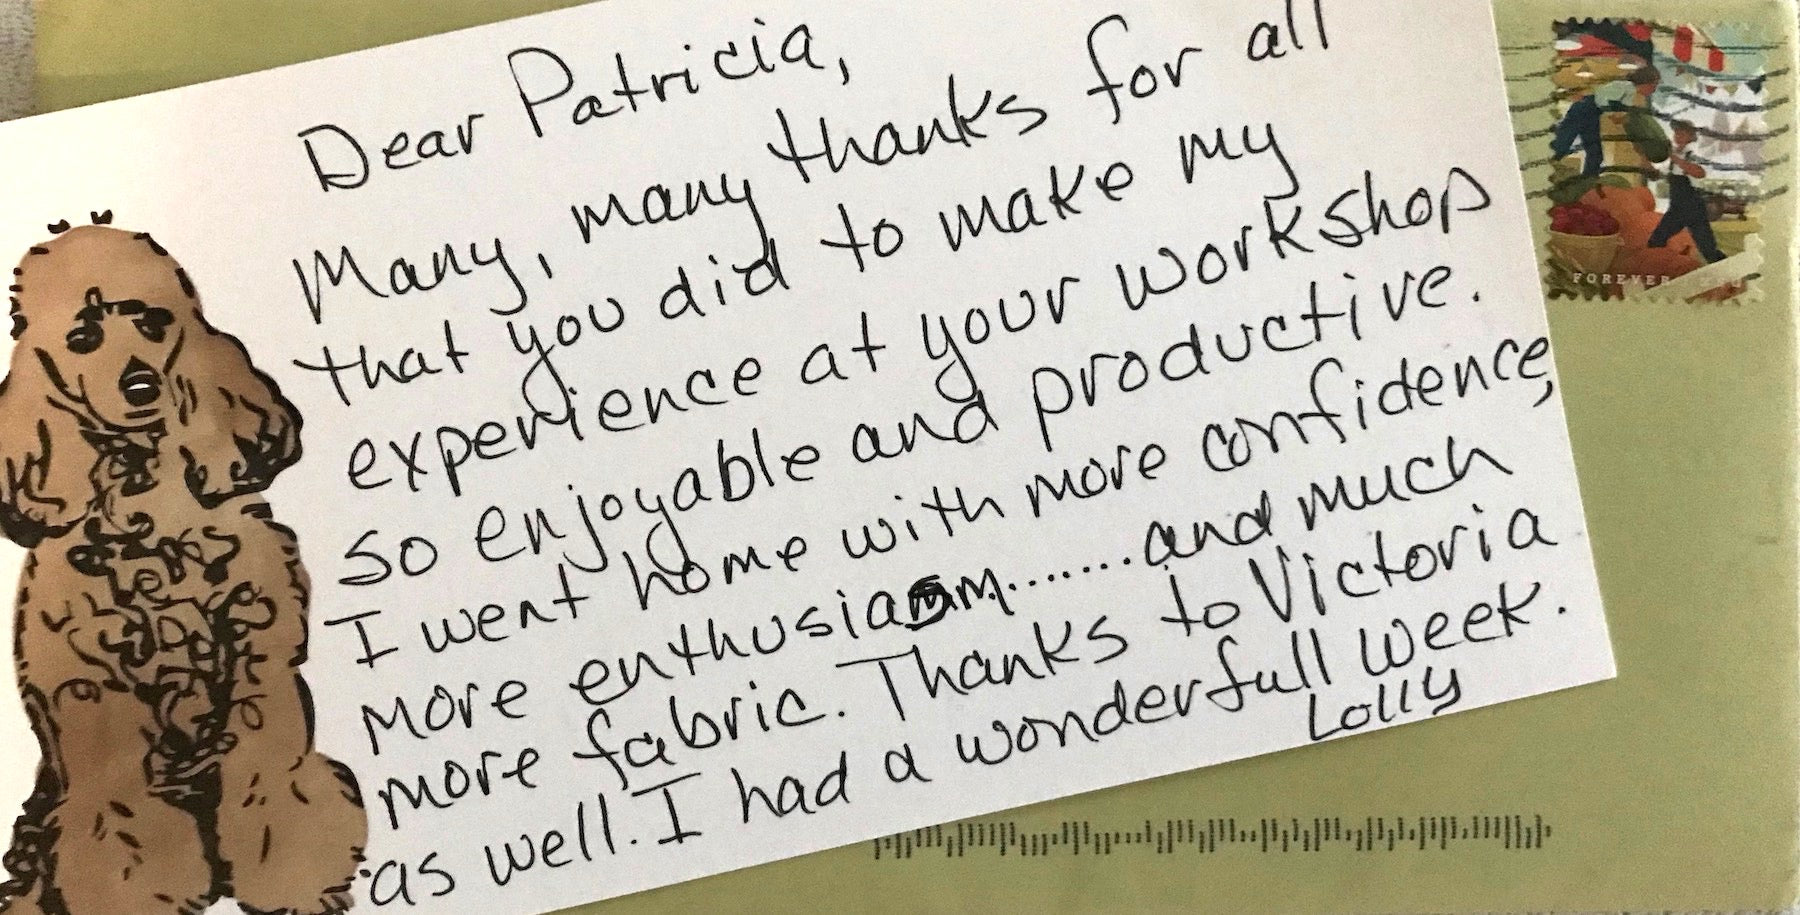 Dear Patricia,
Many, many thanks for all
that you did to make my
experience at your workshop
so enjoyable and productive.
I went home with more confidence,
more enthusiasm.......and much
more fabric. Thanks to Victoria
as well. I had a wonderfull week.
Lolly
FOREVER